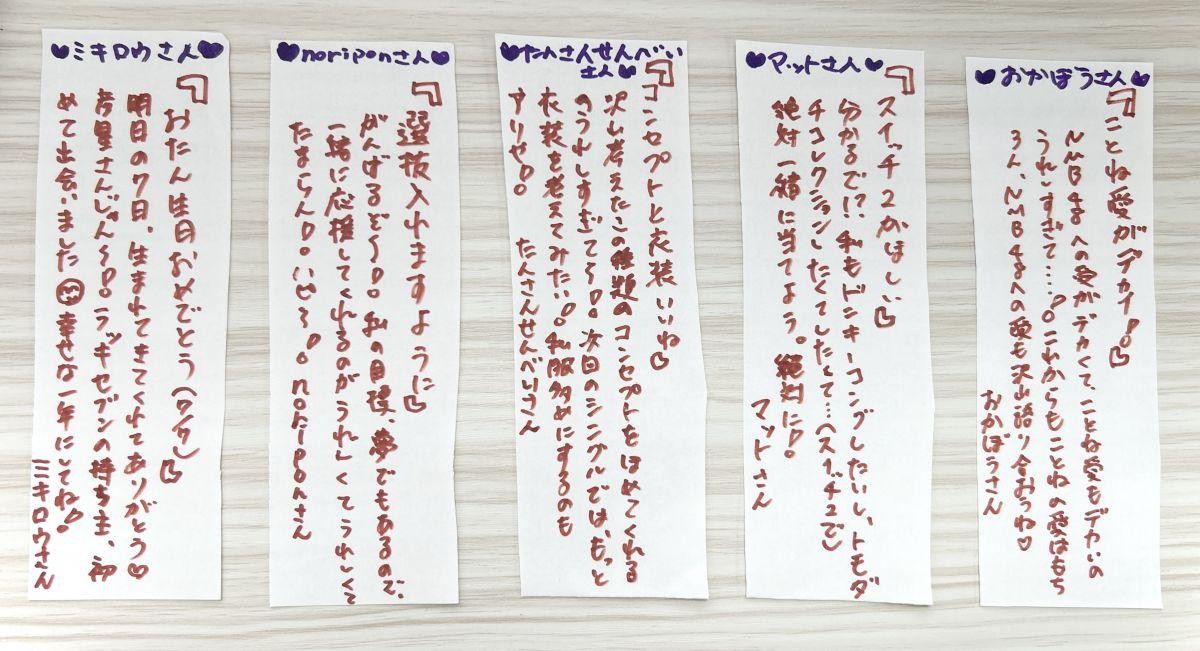 ♥ミキロウさん♥
『おたん生日おめでとう(タケ)』
明日の7日、生まれてきてくれてありがとう♡
奇星さんじゃん〜!。ラッキセブンの持ち主、初
めて出会いました 幸せな一年にしてね!。
ミキロウさん
♥noriponさん♥
『選抜入れますように』
がんばるぞ〜!。私の目標、夢でもあるので、
一緒に応援してくれるのがうれしくてうれしくて
たまらん!。いぇ〜!。noriponさん
♥たんさんせんべいさん♥
『コンセプトと衣装いいね』
次し考えたこの種類のコンセプトをほめてくれる
のうれしすぎて〜!。次回のシングルでは、もっと
衣装を考えてみたい!。私服多めにするのも
アリやな!。 たんさんせんべいさん
♥マットさん♥
『スイッチ2がほしい』
分かるで!?私もドンキーコングしたいし、トモダ
チコレクションしたくてしたくて…へスイッチ2でし
絶対一緒に当てよう。絶対に!。
マットさん
♥おかぼうさん♥
『ことね愛がデカイ!。』
NMB48への愛がデカくて、ことね愛もデカいの
うれしすぎて……!。これからもことねの愛はもち
ろん、NMB48への愛も沢山語り合おうね♡
おかぼうさん